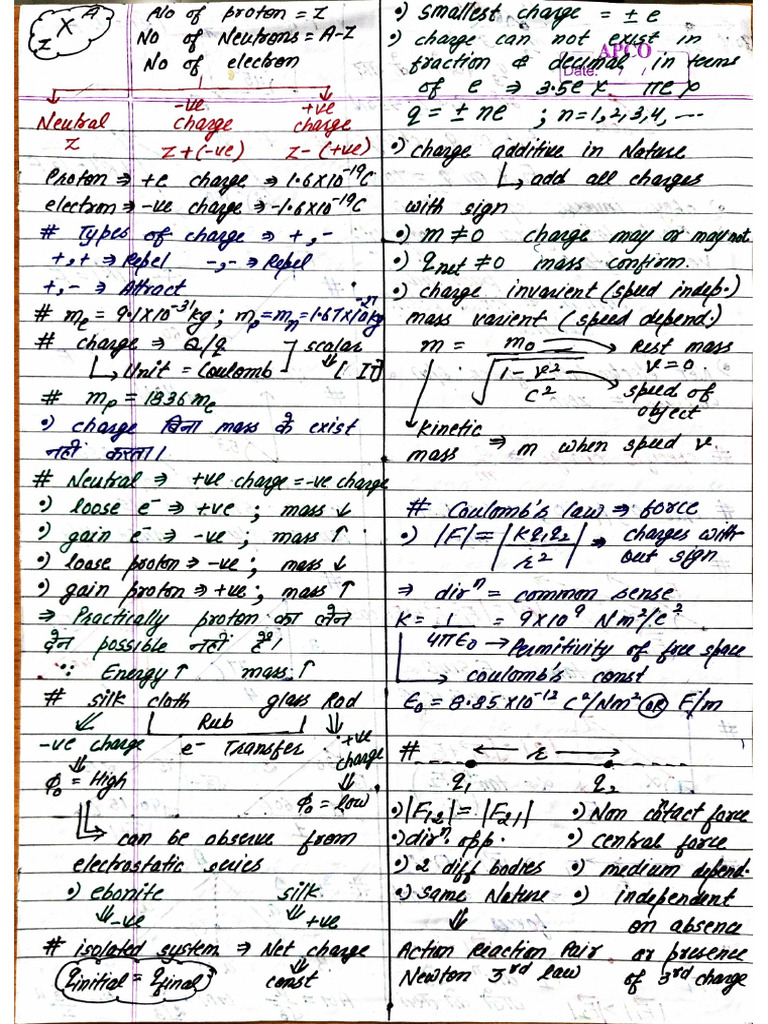 Z X A
No of proton = Z
No of Neutrons = A-Z
No of electron
Neutral -ve charge +ve charge
Z Z+(-ve) Z-(+ve)
Proton ⇒ +e charge ⇒ 1.6×10⁻¹⁹C
electron ⇒ -ve charge ⇒ -1.6×10⁻¹⁹C
# Types of charge ⇒ +, -
+,+ ⇒ Repel -,- ⇒ Repel
+,- ⇒ Attract
# me = 9.1×10⁻³¹kg ; mp = mn = 1.67×10⁻²⁷kg
# charge ⇒ Q/q ] scalar
↳ Unit = Coulomb ⇓ [ IT]
# mp = 1836 me
•) charge बिना mass के exist
नहीं करता।
# Neutral ⇒ +ve charge = -ve charge
•) loose e⁻ ⇒ +ve ; mass ↓
•) gain e⁻ ⇒ -ve ; mass ↑
•) loose proton ⇒ -ve ; mass ↓
•) gain proton ⇒ +ve ; mass ↑
⇒ Practically proton का लेन
देन possible नहीं है।
∵ Energy ↑ mass ↑
# silk cloth glass Rod
Rub
-ve charge e⁻ Transfer +ve charge
ϕ₀ = High
ϕ₀ = low
can be observe from
electrostatic series
•) ebonite silk
⇓ -ve ⇓ +ve
# isolated system ⇒ Net charge
qinitial = qfinal const
•) smallest charge = ± e
•) charge can not exist in
APCO
fraction & decimal in terms
Date: / /
of e ⇒ 3.5e × πe ×
q = ± ne ; n = 1,2,3,4, ...
•) charge additive in Nature
↳ add all charges
with sign
•) m ≠ 0 charge may or may not
•) qnet ≠ 0 mass confirm.
•) charge invarient (speed indep.)
mass varient (speed depend.)
m = m₀ / √(1 - v²/c²) → Rest mass
v = 0.
→ speed of
object
kinetic
mass ⇒ m when speed v.
# Coulomb's law ⇒ force
•) |F| = |Kq₁q₂ / r²| ⇒ charges with
out sign
⇒ dirⁿ = common sense
K = 1 / 4πϵ₀ = 9×10⁹ Nm²/c²
→ Permitivity of free space
→ coulomb's const
ϵ₀ = 8.85×10⁻¹² C²/Nm² or F/m
# ← r →
q₁ q₂
•) |F₁₂| = |F₂₁| •) Non contact force
•) dirⁿ opp. •) central force
•) 2 diff bodies •) medium depend.
•) same Nature •) independent
⇓ on absence
Action Reaction Pair or presence
Newton 3rd law of 3rd charge